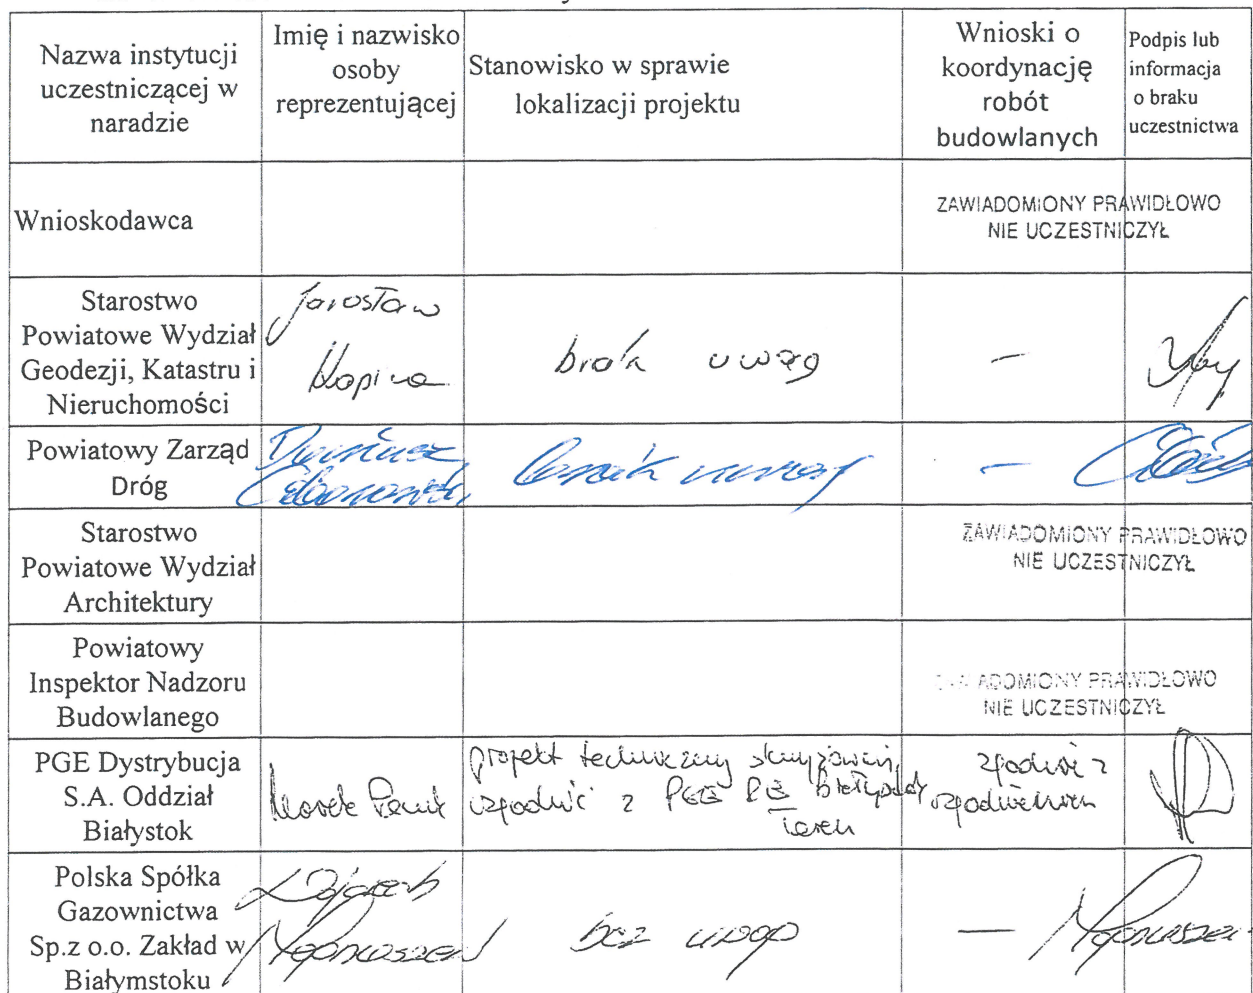 Nazwa instytucji
uczestniczącej w
naradzie
Imię i nazwisko
osoby
reprezentującej
Stanowisko w sprawie
lokalizacji projektu
Wnioski o
koordynację
robót
budowlanych
Podpis lub
informacja
o braku
uczestnictwa
Wnioskodawca
ZAWIADOMIONY PRAWIDŁOWO
NIE UCZESTNICZYŁ
Starostwo
Powiatowe Wydział
Geodezji, Katastru i
Nieruchomości
Jarosław
brak uwag
–
Powiatowy Zarząd
Dróg
Dariusz
brak uwag
–
Starostwo
Powiatowe Wydział
Architektury
ZAWIADOMIONY PRAWIDŁOWO
NIE UCZESTNICZYŁ
Powiatowy
Inspektor Nadzoru
Budowlanego
ZAWIADOMIONY PRAWIDŁOWO
NIE UCZESTNICZYŁ
PGE Dystrybucja
S.A. Oddział
Białystok
Marek
projekt techniczny skrzyżowań
uzgodnić z PGE RE Białystok
Teren
zgodnie z
uzgodnieniem
Polska Spółka
Gazownictwa
Sp.z o.o. Zakład w
Białymstoku
Wojciech
bez uwag
—